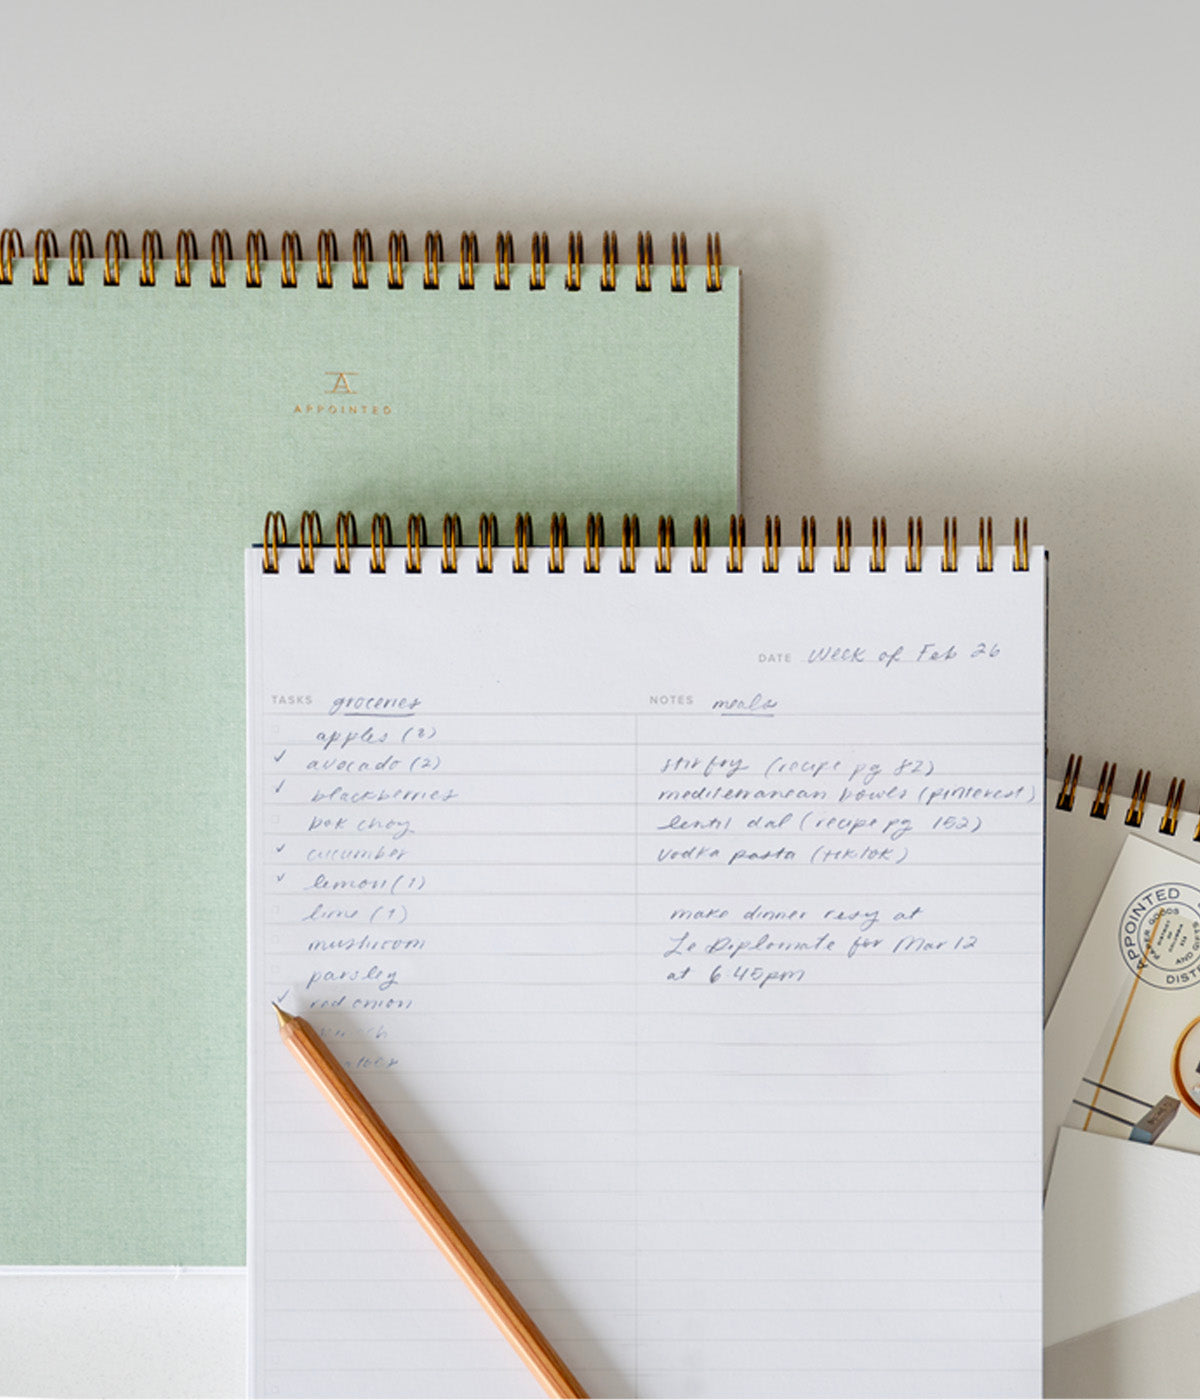 APPOINTED
DATE Week of Feb 26
TASKS groceries
apples (3)
✓ avocado (2)
✓ blackberries
bok choy
✓ cucumber
✓ lemon (1)
lime (1)
mushroom
parsley
✓ red onion
NOTES meals
stir fry (recipe pg 82)
mediterranean bowls (pinterest)
lentil dal (recipe pg 152)
vodka pasta (tiktok)
make dinner resy at
Le Diplomate for Mar 12
at 6:45pm
APPOINTED
PAPER GOODS
DISTRICT OF COLUMBIA